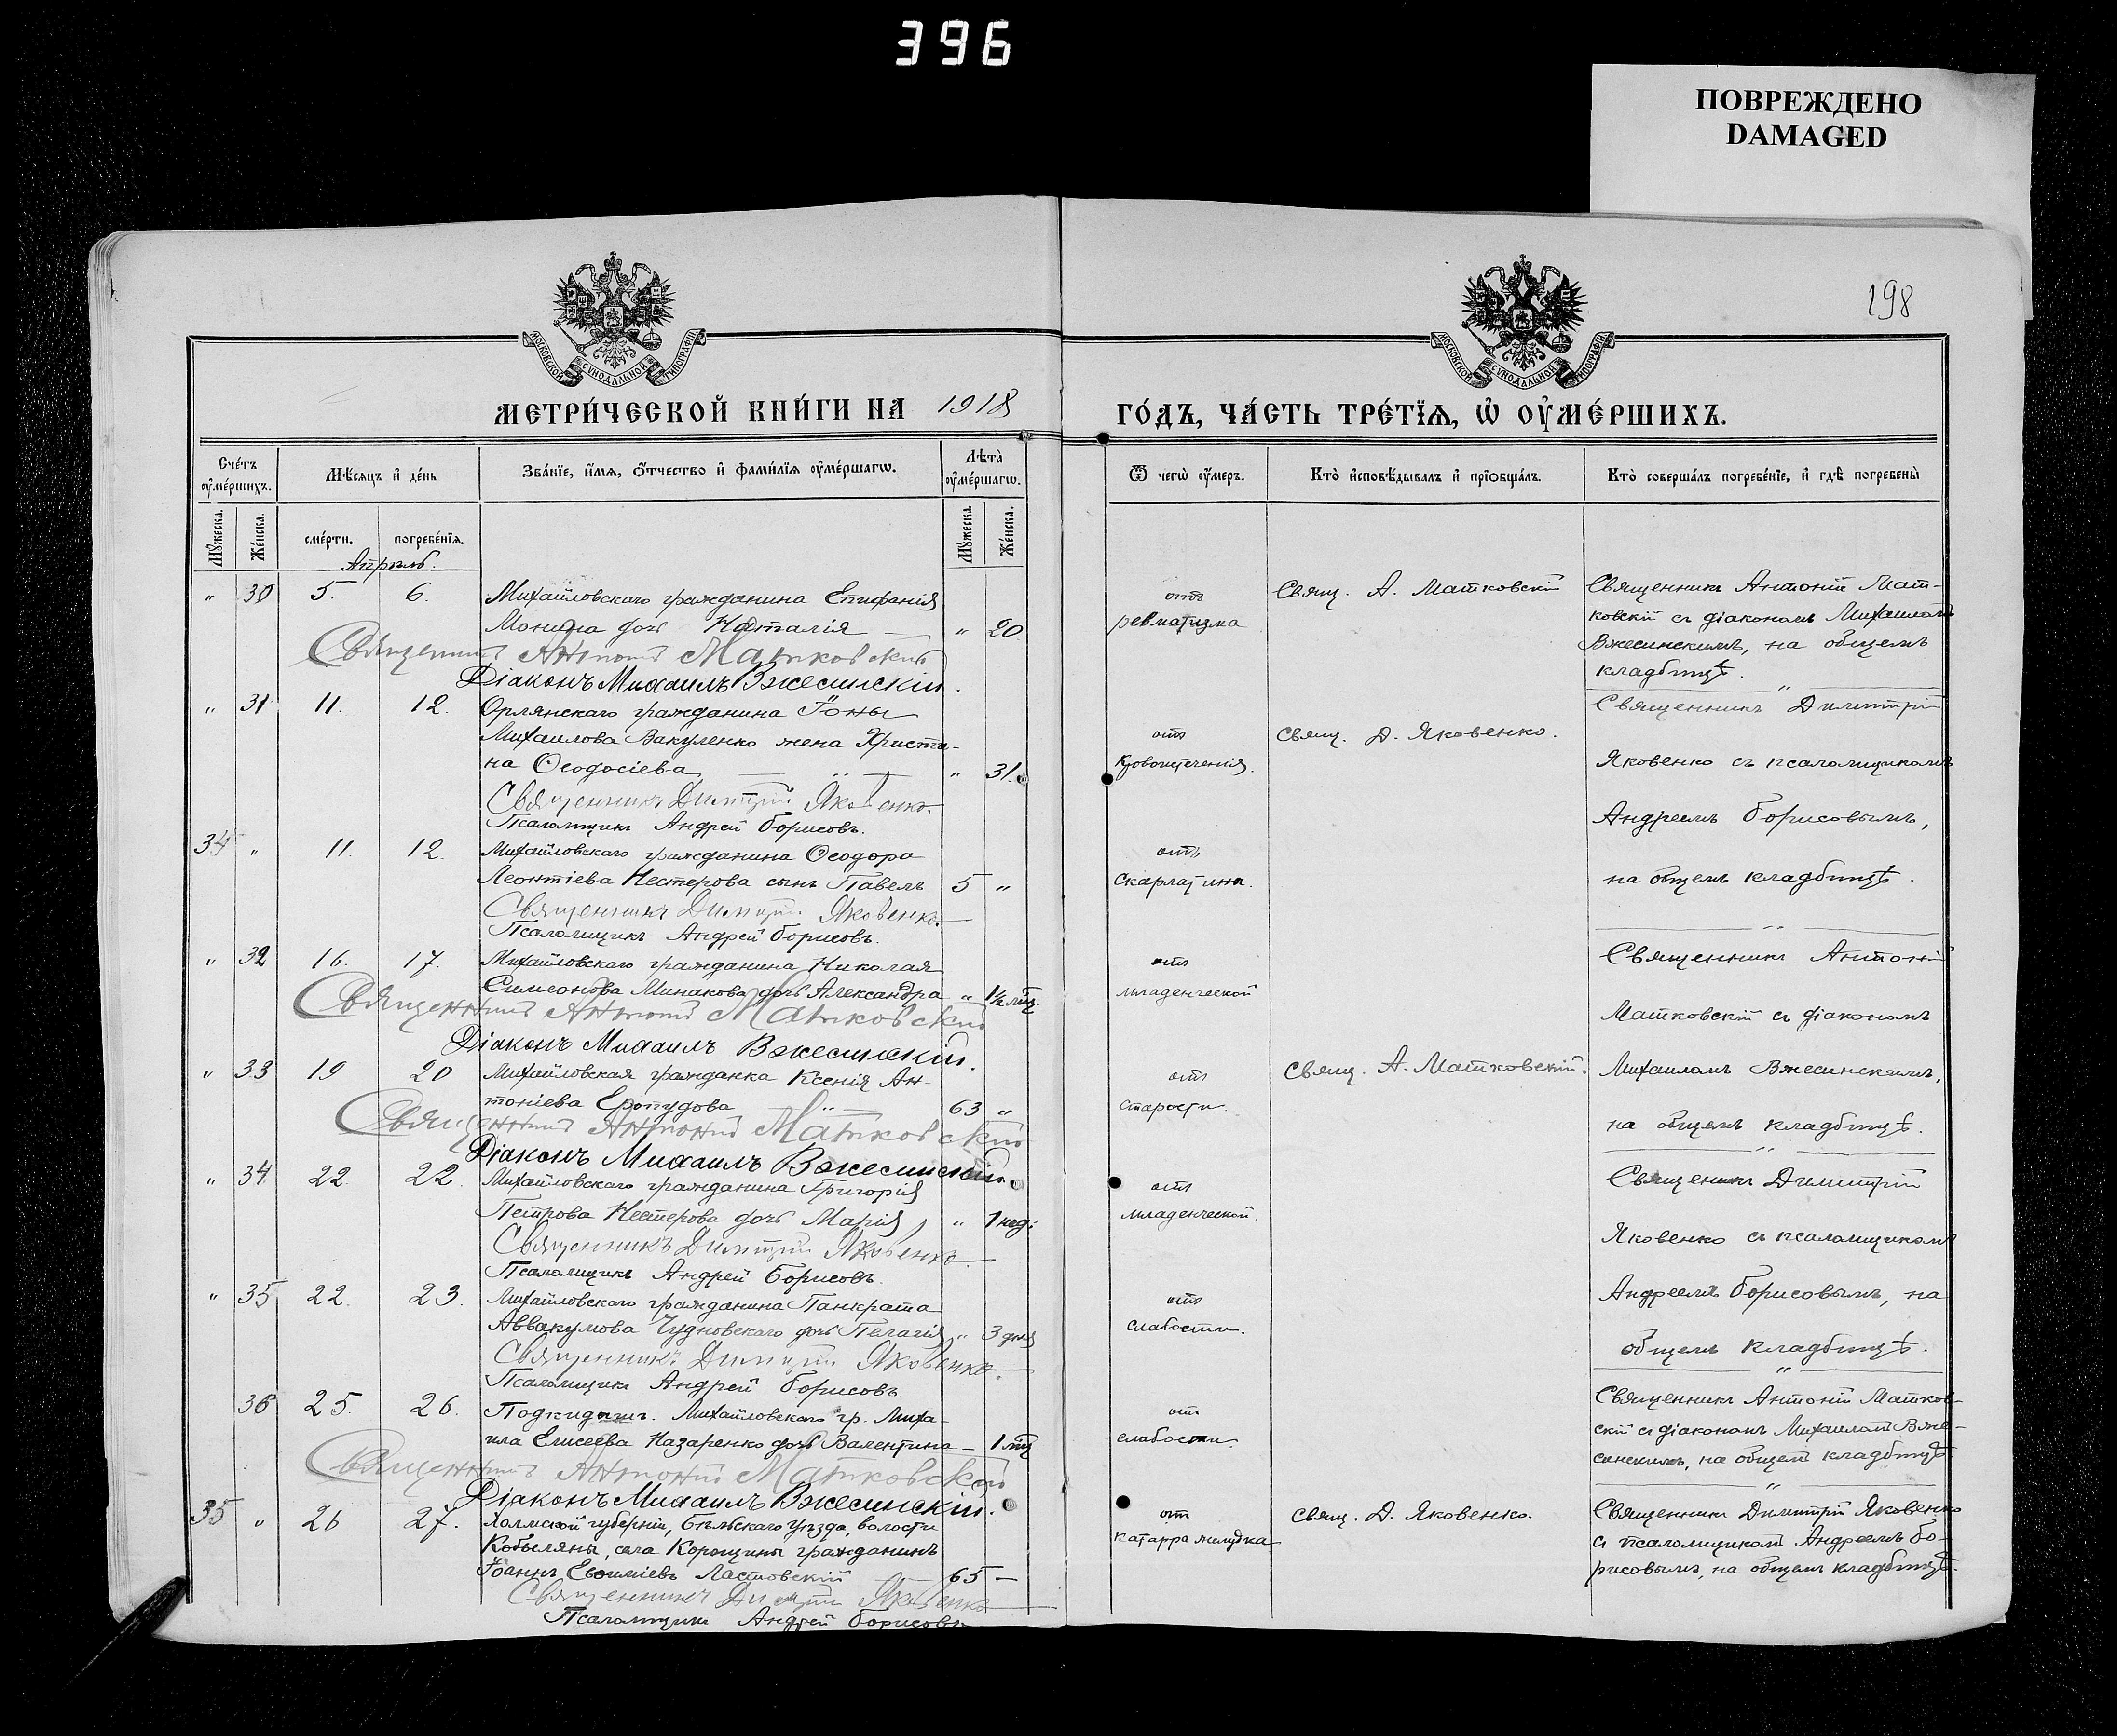 396
ПОВРЕЖДЕНО
DAMAGED
198
МОСКОВСКОЙ СѴНОДАЛЬНОЙ ТИПОГРАФІИ
МОСКОВСКОЙ СѴНОДАЛЬНОЙ ТИПОГРАФІИ
МЕТРИ́ЧЕСКОЙ КНИ́ГИ НА 1918
ГО́ДЪ, ЧА́СТЬ ТРЕ́ТЇѦ, Ѡ҆ ОУ҆МЕ́РШИХЪ.
Сче́тъ оу҆ме́ршихъ.
Мѣ́сяцъ и҆ де́нь
Зва́нїе, и҆́мя, ѻ҆́тчество и҆ фами́лїя оу҆ме́ршагѡ.
Лѣ́та оу҆ме́ршагѡ.
Ѿ чегѡ̀ оу҆́меръ.
Кто̀ и҆сповѣ́дывалъ и҆ прїѻбща́лъ.
Кто̀ соверша́лъ погребе́нїе, и҆ гдѣ̀ погребены̀
Мꙋ́жеска.
Же́нска.
сме́рти.
погребе́нїя.
Мꙋ́жеска.
Же́нска.
Апрѣль.
" 30 5. 6. Михайловскаго гражданина Епифанія
Монина дочь Наталія — " 20
Священникъ Антоній Матковскій
Діаконъ Михаилъ Вжесинскій.
отъ
ревматизма
Свящ. А. Матковскій
Священникъ Антоній Мат-
ковскій съ діакономъ Михаиломъ
Вжесинскимъ, на общемъ
кладбищѣ.
" 31 11. 12. Орлянскаго гражданина Іоны
Михаилова Вакуленко жена Христи-
на Ѳеодосіева — " — " 31.
Священникъ Димитрій Яковенко.
Псаломщикъ Андрей Борисовъ.
отъ
Кровотеченія.
Свящ. Д. Яковенко.
Священникъ Димитрій
Яковенко съ псаломщикомъ
Андреемъ Борисовымъ,
на общемъ кладбищѣ.
34 " 11. 12. Михайловскаго гражданина Ѳеодора
Леонтіева Нестерова сынъ Павелъ 5 "
Священникъ Димитрій Яковенко.
Псаломщикъ Андрей Борисовъ.
отъ
Скарлатины.
" 32 16. 17. Михайловскаго гражданина Николая
Симеонова Минакова дочь Александра " 1½ мѣц.
Священникъ Антоній Матковскій
Діаконъ Михаилъ Вжесинскій.
отъ
младенческой
Священникъ Антоній
Матковскій съ діакономъ
Михаиломъ Вжесинскимъ,
на общемъ кладбищѣ.
" 33 19 20 Михайловская гражданка Ксенія Ан-
тоніева Еропудова — " — 63 "
Священникъ Антоній Матковскій
Діаконъ Михаилъ Вжесинскій.
отъ
старости.
Свящ. А. Матковскій.
" 34 22. 22. Михайловскаго гражданина Григорія
Петрова Нестерова дочь Марія " 1 нед.
Священникъ Димитрій Яковенко
Псаломщикъ Андрей Борисовъ.
отъ
младенческой.
Священникъ Димитрій
Яковенко съ псаломщикомъ
Андреемъ Борисовымъ, на
общемъ кладбищѣ.
" 35 22. 23. Михайловскаго гражданина Панкрата
Аввакумова Чудновскаго дочь Пелагія " 3 дня
Священникъ Димитрій Яковенко.
Псаломщикъ Андрей Борисовъ.
отъ
слабости.
36 25. 26. Подкидышъ. Михайловскаго гр. Миха-
ила Елисеева Назаренко дочь Валентина — 1 мѣц
Священникъ Антоній Матковскій
Діаконъ Михаилъ Вжесинскій.
отъ
слабости.
Священникъ Антоній Матков-
скій съ діакономъ Михаиломъ Вже-
синскимъ, на общемъ кладбищѣ
35 " 26 27. Холмской губерніи, Бѣльскаго уѣзда, волости
Кобыляны, села Корощины гражданинъ
Іоаннъ Евѳиміевъ Ластовскій 65 —
Священникъ Димитрій Яковенко
Псаломщикъ Андрей Борисовъ
отъ
катарра желудка
Свящ. Д. Яковенко.
Священникъ Димитрій Яковенко
съ псаломщикомъ Андреемъ Бо-
рисовымъ, на общемъ кладбищѣ.